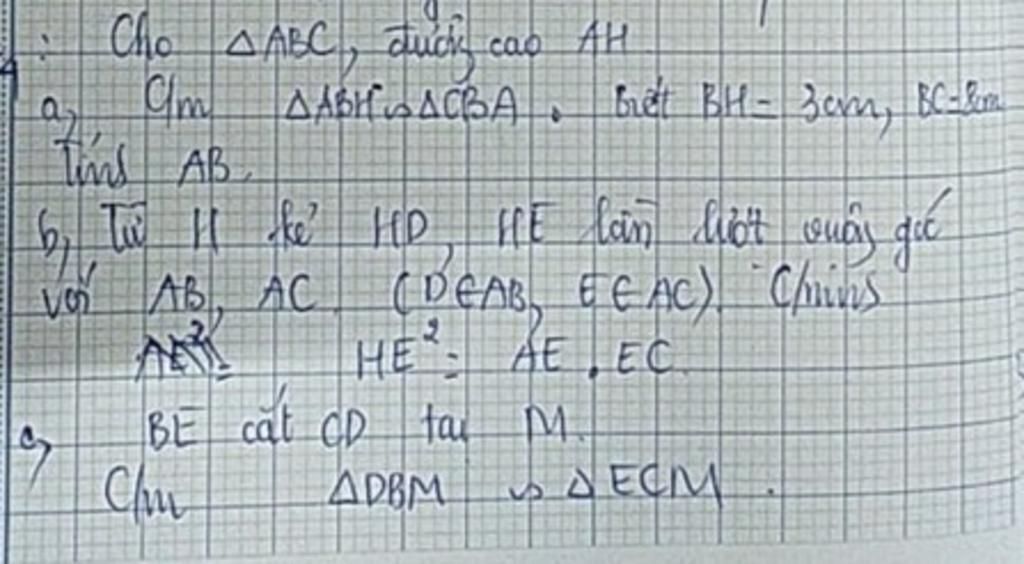 : Cho △ABC, đường cao AH
a, C/m △ABH ∽ △CBA. Biết BH = 3cm, BC = 8cm
Tính AB.
b, Từ H kẻ HD, HE lần lượt vuông góc
với AB, AC (D∈AB, E∈AC). C/minh
HE² = AE . EC
c, BE cắt CD tại M.
C/m △DBM ∽ △ECM.